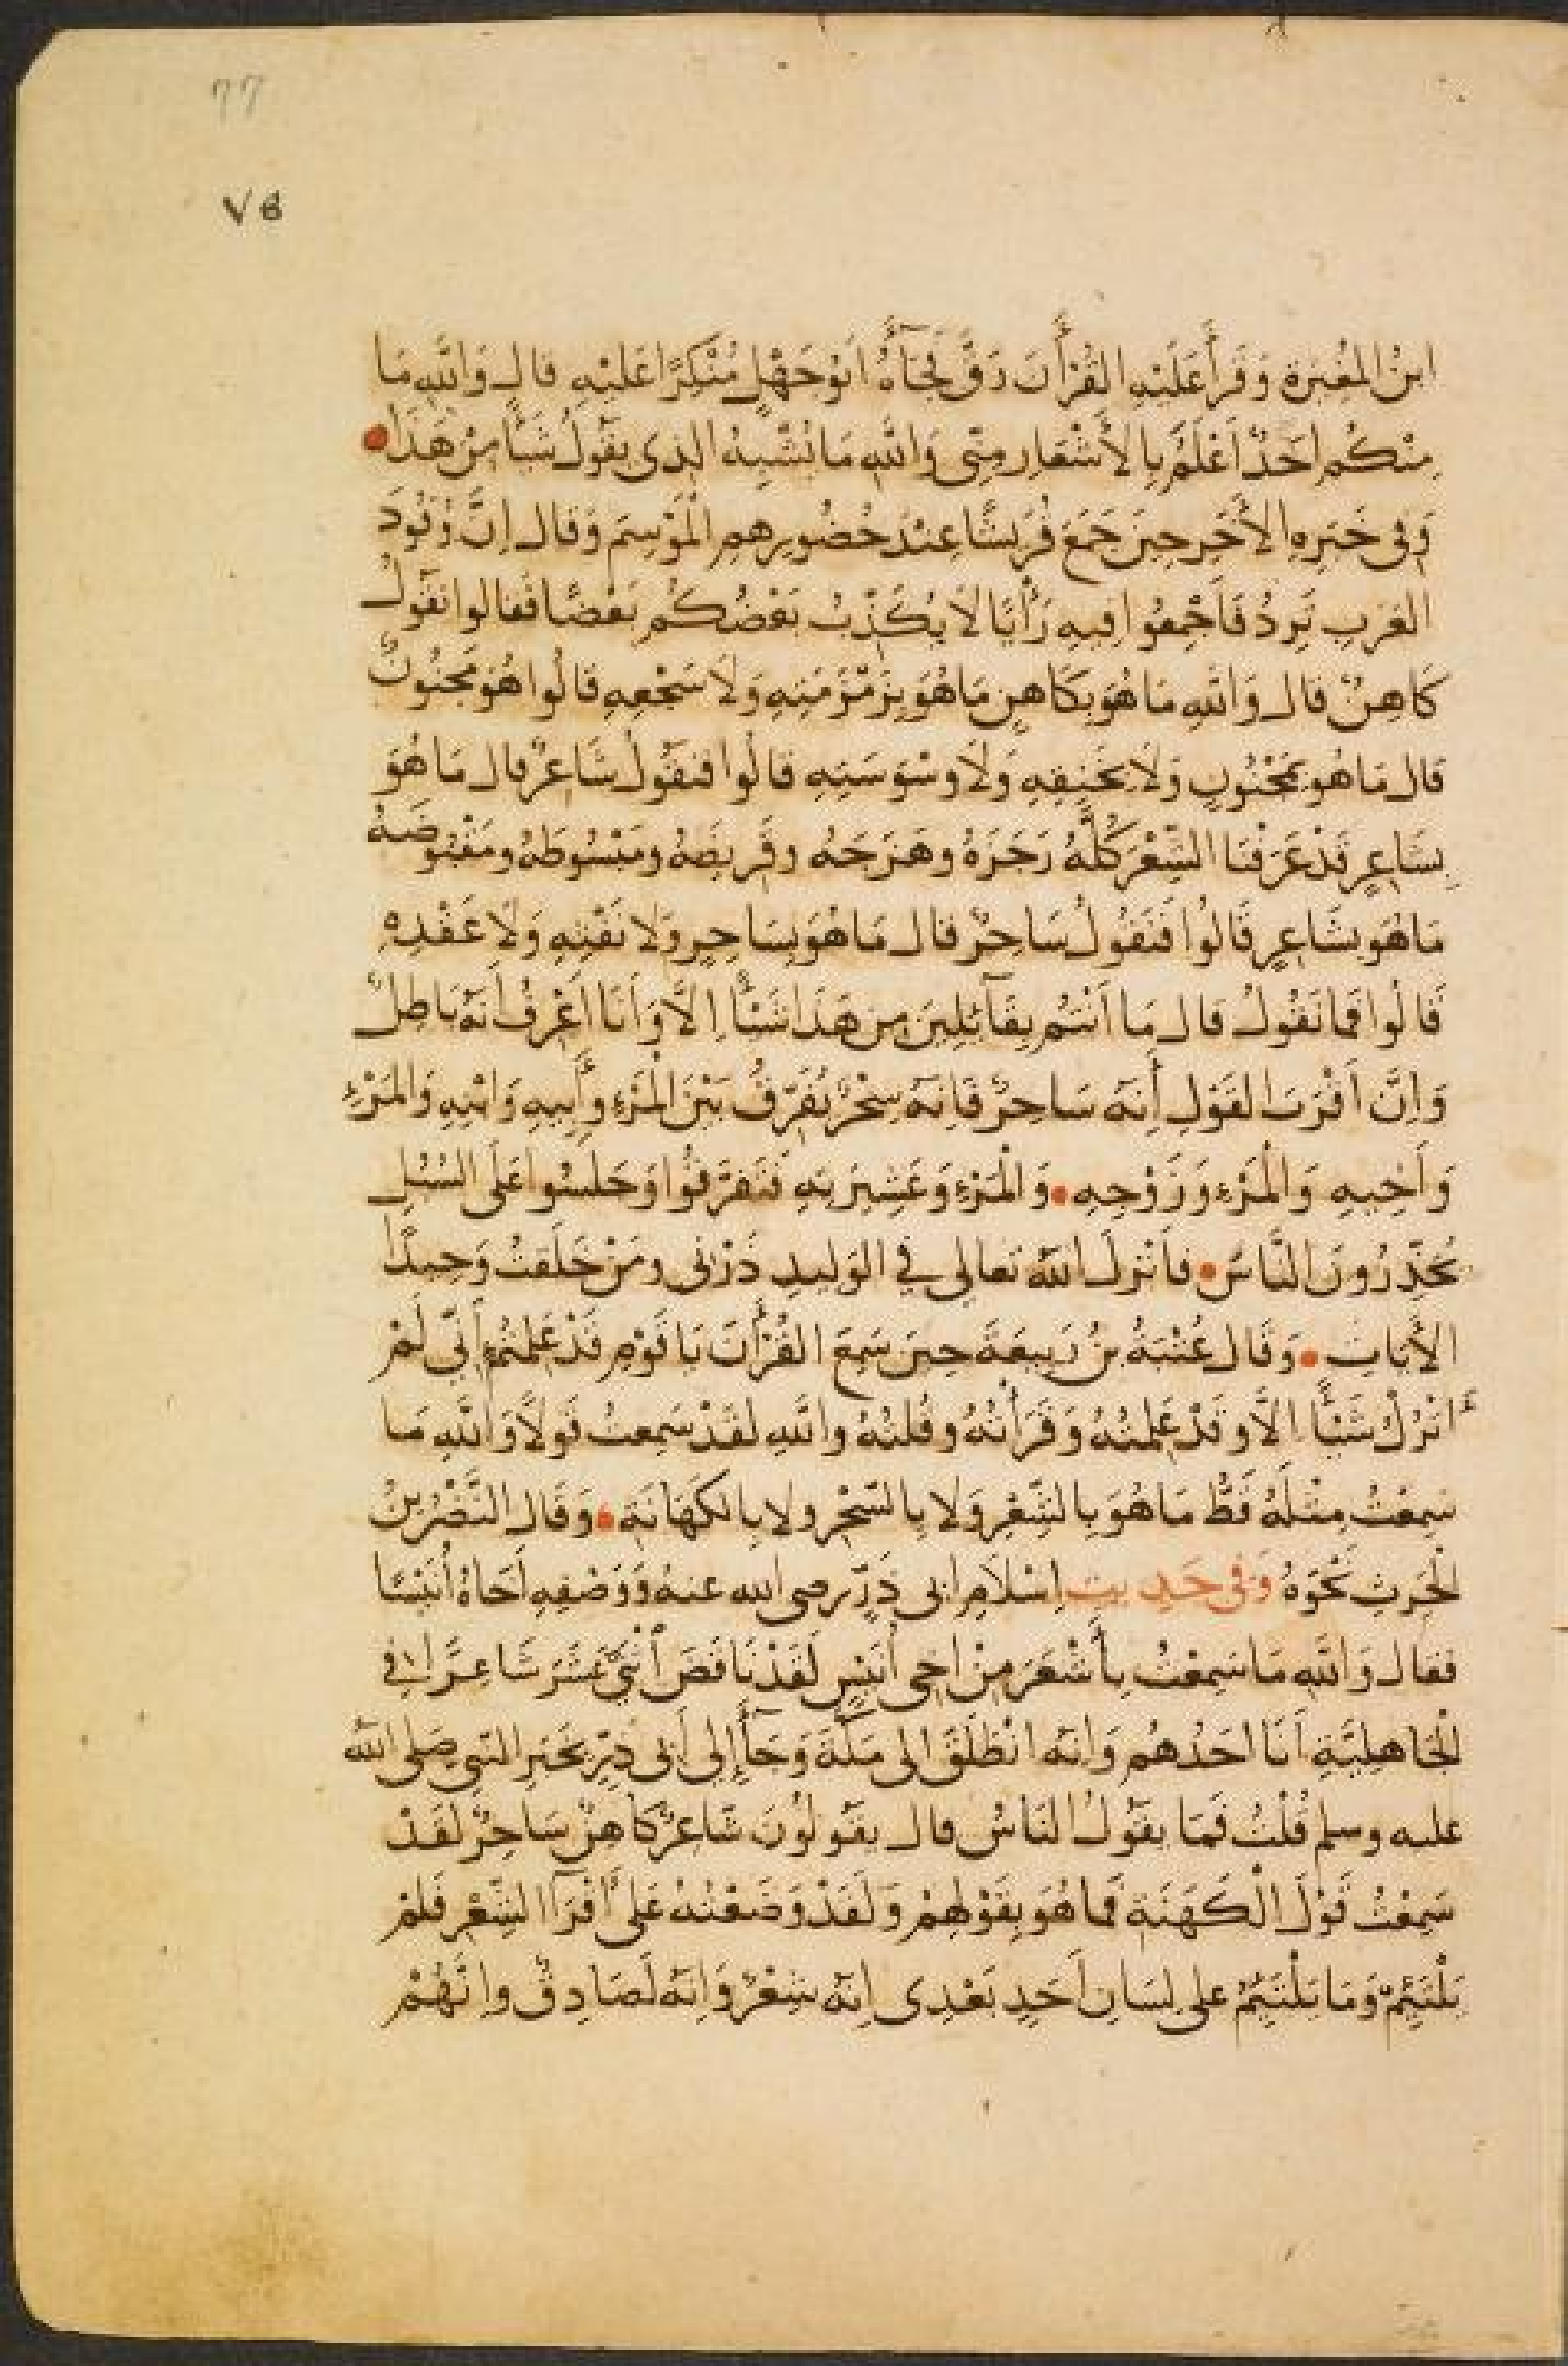 77
٧٥
ابنُ المُغِيرَةِ وَقَرَأَ عَلَيْهِ القُرْأَنَ رَقَّ فَجَآءَهُ اَبُو جَهْلٍ مُنْكِرًا عَلَيْهِ قال وَاللَّهِ مَا
مِنْكُم اَحَدٌ اَعْلَمُ بِالأَشْعَارِ مِنِّى وَاللَّهِ مَا يُشْبِهُ الذى يقولُ شَيْأً مِنْ هَذَا
وَفى خَبَرِهِ الأَخَرِ حِينَ جَمَعَ قُرَيْشًا عِنْدَ حُضُورِهِمِ الْمَوْسِمَ وَقال اِنَّ وُفُودَ
العَرَبِ تَرِدُ فَاَجْمِعُوا فِيهِ رَأْيًا لاَ يُكَذِّبُ بَعْضُكُم بَعْضًا فقالوا نَقُولُ
كَاهِنٌ قال وَاللَّهِ مَا هُوَ بِكَاهِنٍ مَا هُوَ بِزَمْزَمَتِهِ وَلاَ سَجْعِهِ قَالُوا هُوَ مَجْنُونٌ
قال مَا هُو بِمَجْنُونٍ وَلاَ بِخَنِقِهِ وَلاَ وسْوَسَتِهِ قالُوا فَنَقُولُ شَاعِرٌ قال مَا هُوَ
بِشَاعِرٍ قَدْ عَرَفْنَا الشِّعْرَ كُلَّهُ رَجَزَهُ وهَزَجَهُ وقَرِيضَهُ ومَبْسُوطَهُ ومَقْبُوضَهُ
مَا هُوَ بشَاعِرٍ قَالُوا فَنَقُولُ سَاحِرٌ قال مَا هُوَ بِسَاحِرٍ وَلا نَفْثِهِ وَلا عَقْدِهِ
قَالُوا فَما نَقُولُ قال مَا اَنْتُم بِقَآئِلِينَ مِن هَذَا شَيْأً اِلاَّ وَاَنَا اَعْرِفُ اَنَّهُ بَاطِلٌ
وَاِنَّ اَقْرَبَ القَوْلِ أَنَّهُ سَاحِرٌ فَاِنَّهُ سِحْرٌ يُفَرِّقُ بَيْنَ الْمَرْءِ وَأَبِيهِ وَابْنِهِ وَالمَرْءِ
وَاَخِيهِ وَالْمَرْءِ وَزَوْجِهِ وَالْمَرْءِ وَعَشِيرَتِهِ فَتَفَرَّقُوا وَجَلَسُوا عَلَى السُبُلِ
يُحَذِّرُونَ النَّاسَ فَاَنْزَلَ اللَّهُ تعالى فى الوَلِيدِ ذَرْنى ومَنْ خَلَقتُ وَحِيدًا
الأَيَاتِ وَقَال عُتْبَةُ بنُ رَبِيعَةَ حِينَ سَمِعَ القُرْأَنَ يَا قَوْمِ قَدْ عَلِمْتُمْ اَنِّي لَمْ
اَتْرُكْ شَيْأً اِلاَّ وقَدْ عَلِمْتُهُ وَقَرَأْتُهُ وقُلتُهُ واللَّهِ لقَدْ سَمِعتُ قَولاً وَاللَّهِ مَا
سَمِعْتُ مِثْلَهُ قَطُّ مَا هُوَ بِالشِّعْرِ وَلا بِالسِّحْرِ ولا بِالكهَانَةِ وَقَال النَّضْرُ بنُ
الْحَرِثِ نَحْوَهُ وَفى حَدِيثِ اِسْلاَمِ ابى ذَرٍّ رضى الله عنهُ وَوَصْفِهِ اَخَاهُ أُنَيْسًا
فقال وَاللَّهِ مَا سَمِعْتُ بِأَشْعَرَ مِنْ اَخِى أُنَيْسٍ لَقَدْ نَاقَضَ اثْنَيْ عَشَرَ شَاعِرًا فى
الْجَاهِلِيَّةِ اَنَا اَحَدُهُم وَاِنَّهُ انْطَلَقَ الى مَكَّةَ وَجَآءَ إِلَى أَبى ذَرٍّ بِخَبَرِ النَّبى صلى الله
عليه وسلم قُلْتُ فَمَا يقُولُ النَاسُ قال يقُولُونَ شاعِرٌ كَاهِنٌ سَاحِرٌ لقَدْ
سَمِعْتُ قَوْلَ الْكَهَنَةِ فَما هُوَ بِقَوْلِهِمْ وَلَقَدْ وَضَعْتُهُ عَلَى أَقْرَآءِ الشِّعْرِ فَلَمْ
يَلْتَئِمْ وَمَا يَلْتَئِمُ على لِسَانِ اَحَدٍ بَعْدِى اِنَّهُ شِعْرٌ وَاِنَّهُ لَصَادِقٌ واِنَّهُمْ